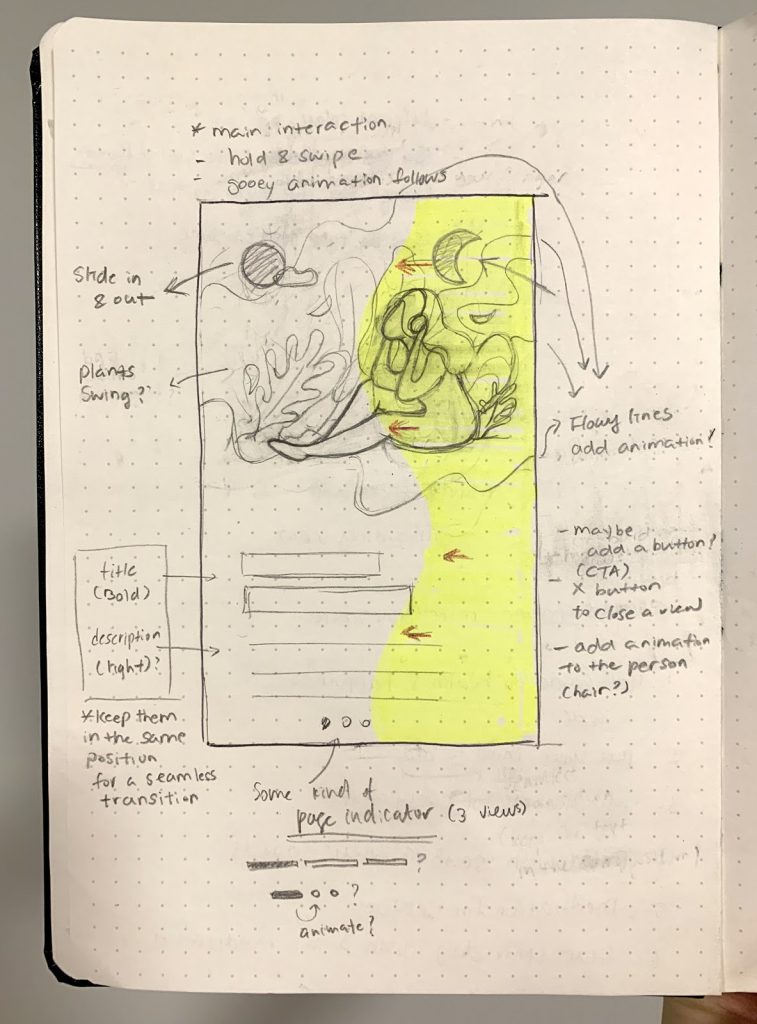 * main interaction
- hold & swipe
- gooey animation follows
Slide in
& out
plants
swing?
Flowy lines
add animation?
title
(Bold)
description
(light)?
* keep them
in the same
position
for a seamless
transition
- maybe
add a button?
(CTA)
- X button
to close a view
- add animation
to the person
(hair?)
Some kind of
page indicator (3 views)
?
?
animate?